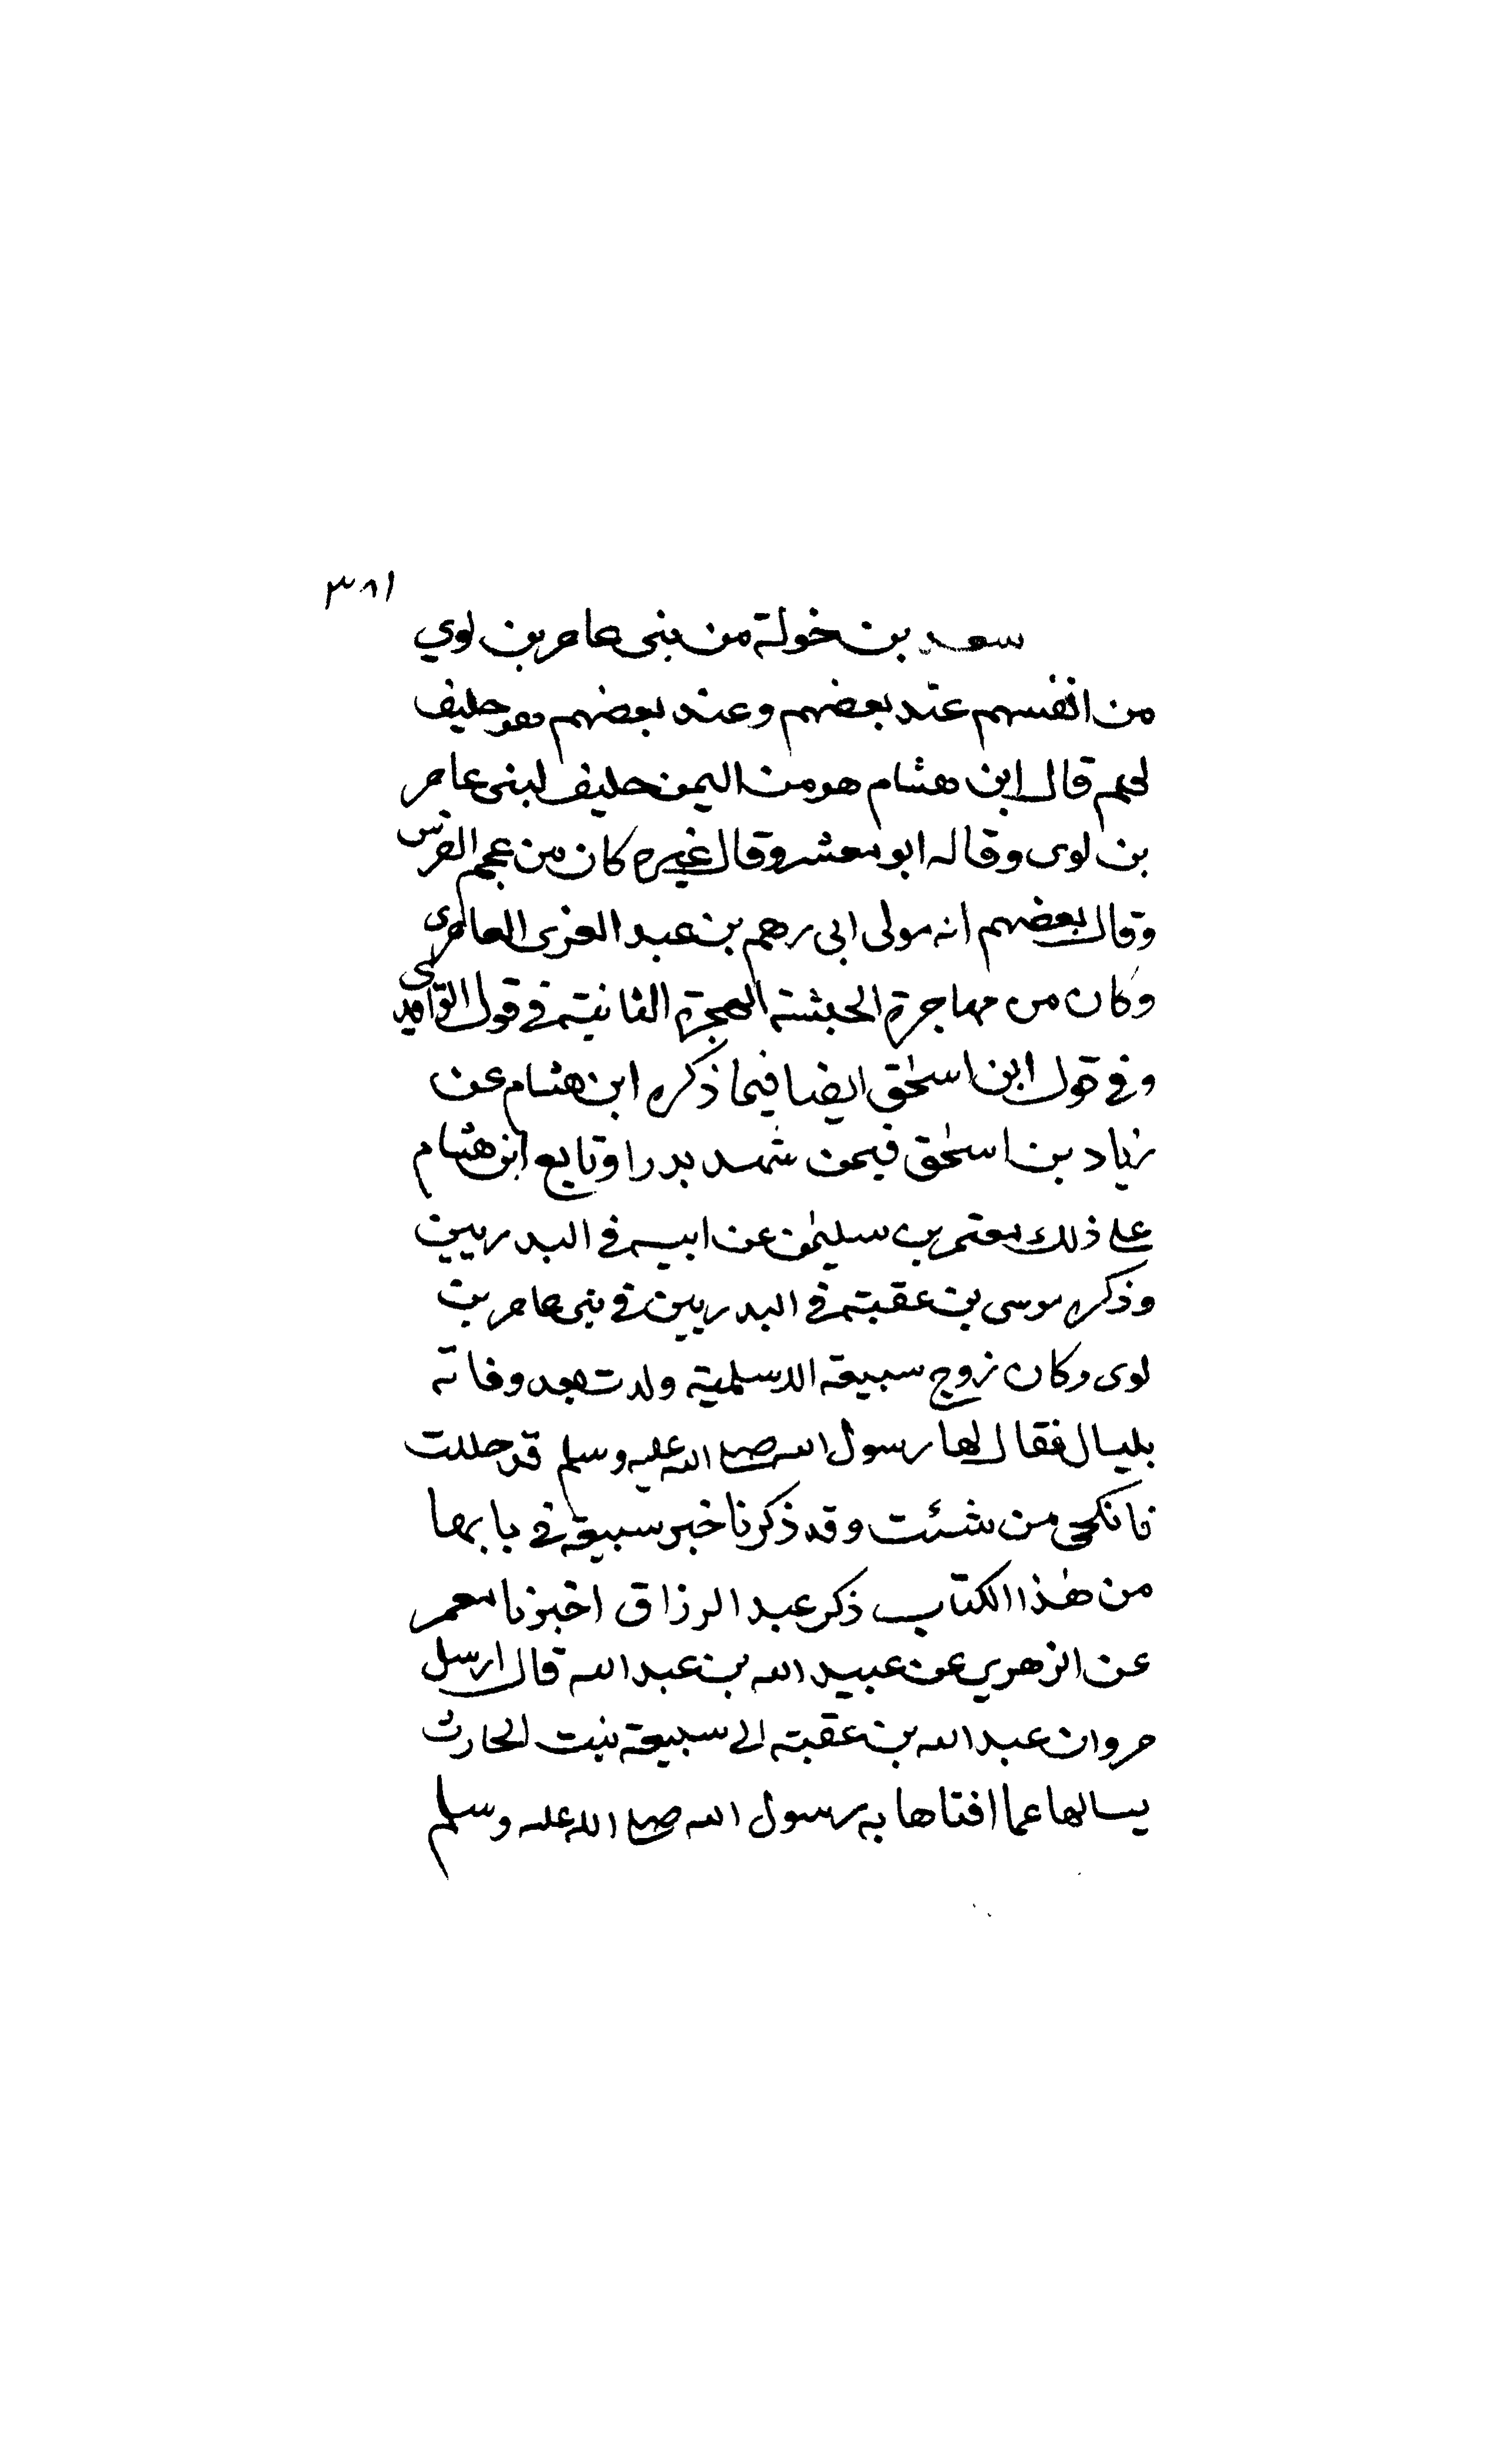 ٣٨١
سعد بن خولة من بنى عامر بن لوي
من انفسهم عند بعضهم وعند بعضهم هو حليف
لهم قال ابن هشام هو من اليمن حليف لبنى عامر
بن لوى وقاله ابو معشر وقال غيره كان من عجم الفرس
وقال بعضهم انه مولى ابى رهم بن عبد العزى العامرى
وكان من مهاجرة الحبشة الهجرة الثانية في قول الواقدى
وفي قول ابن اسحٰق ايضا فيما ذكره ابن هشام عن
زياد بن اسحٰق فيمن شهد بدرا وتابع ابن هشام
على ذلك معتمر بن سليمٰن عن ابيه في البدريين
وذكره موسى بن عقبة في البدريين في بنى عامر بن
لوى وكان زوج سبيعة الاسلمية ولدت بعد وفاته
بليال فقال لها رسول الله صلى الله عليه وسلم قد حللت
فانكحى من شئت وقد ذكرنا خبر سبيعة في بابها
من هٰذا الكتاب ذكر عبد الرزاق اخبرنا معمر
عن الزهري عن عبيد الله بن عبد الله قال ارسل
مروان عبد الله بن عقبة الى سبيعة بنت الحارث
يسالها عما افتاها به رسول الله صلى الله عليه وسلم